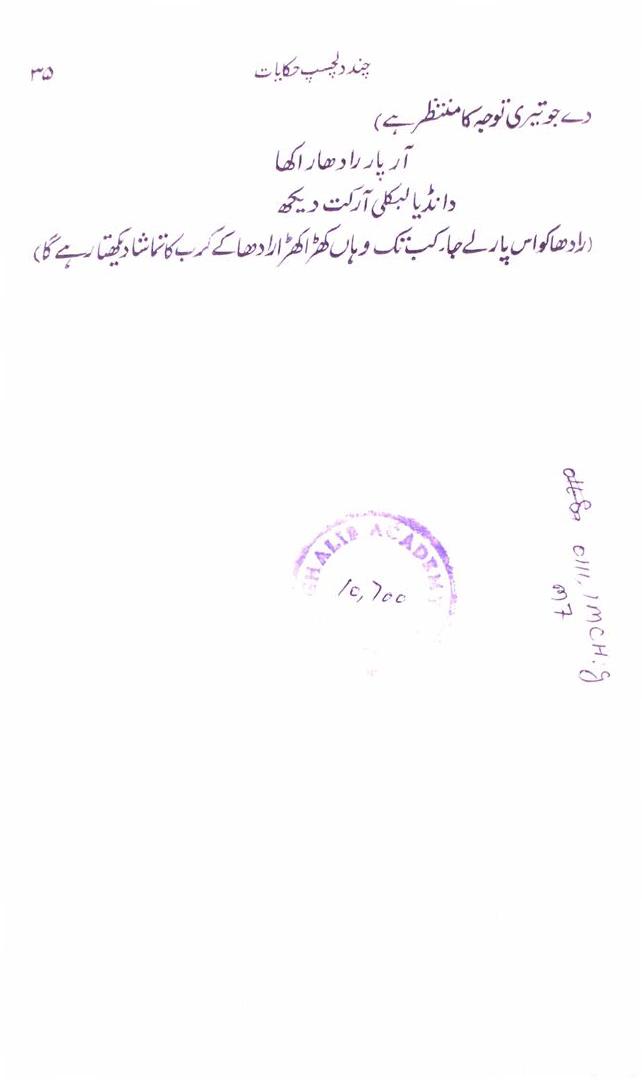 چند دلچسپ حکایات
۳۵
دے جو تیری توجہ کا منتظر ہے)
آر پار رادھا راکھا
دانڈیا لبکلی آرکت دیکھ
(رادھا کو اس پار لے جا۔ کب تک وہاں کھڑا کھڑا رادھا کے کرب کا تماشا دیکھتا رہے گا)
GHALIB ACADEMY
10,700
O111, 1MCH:g
M7